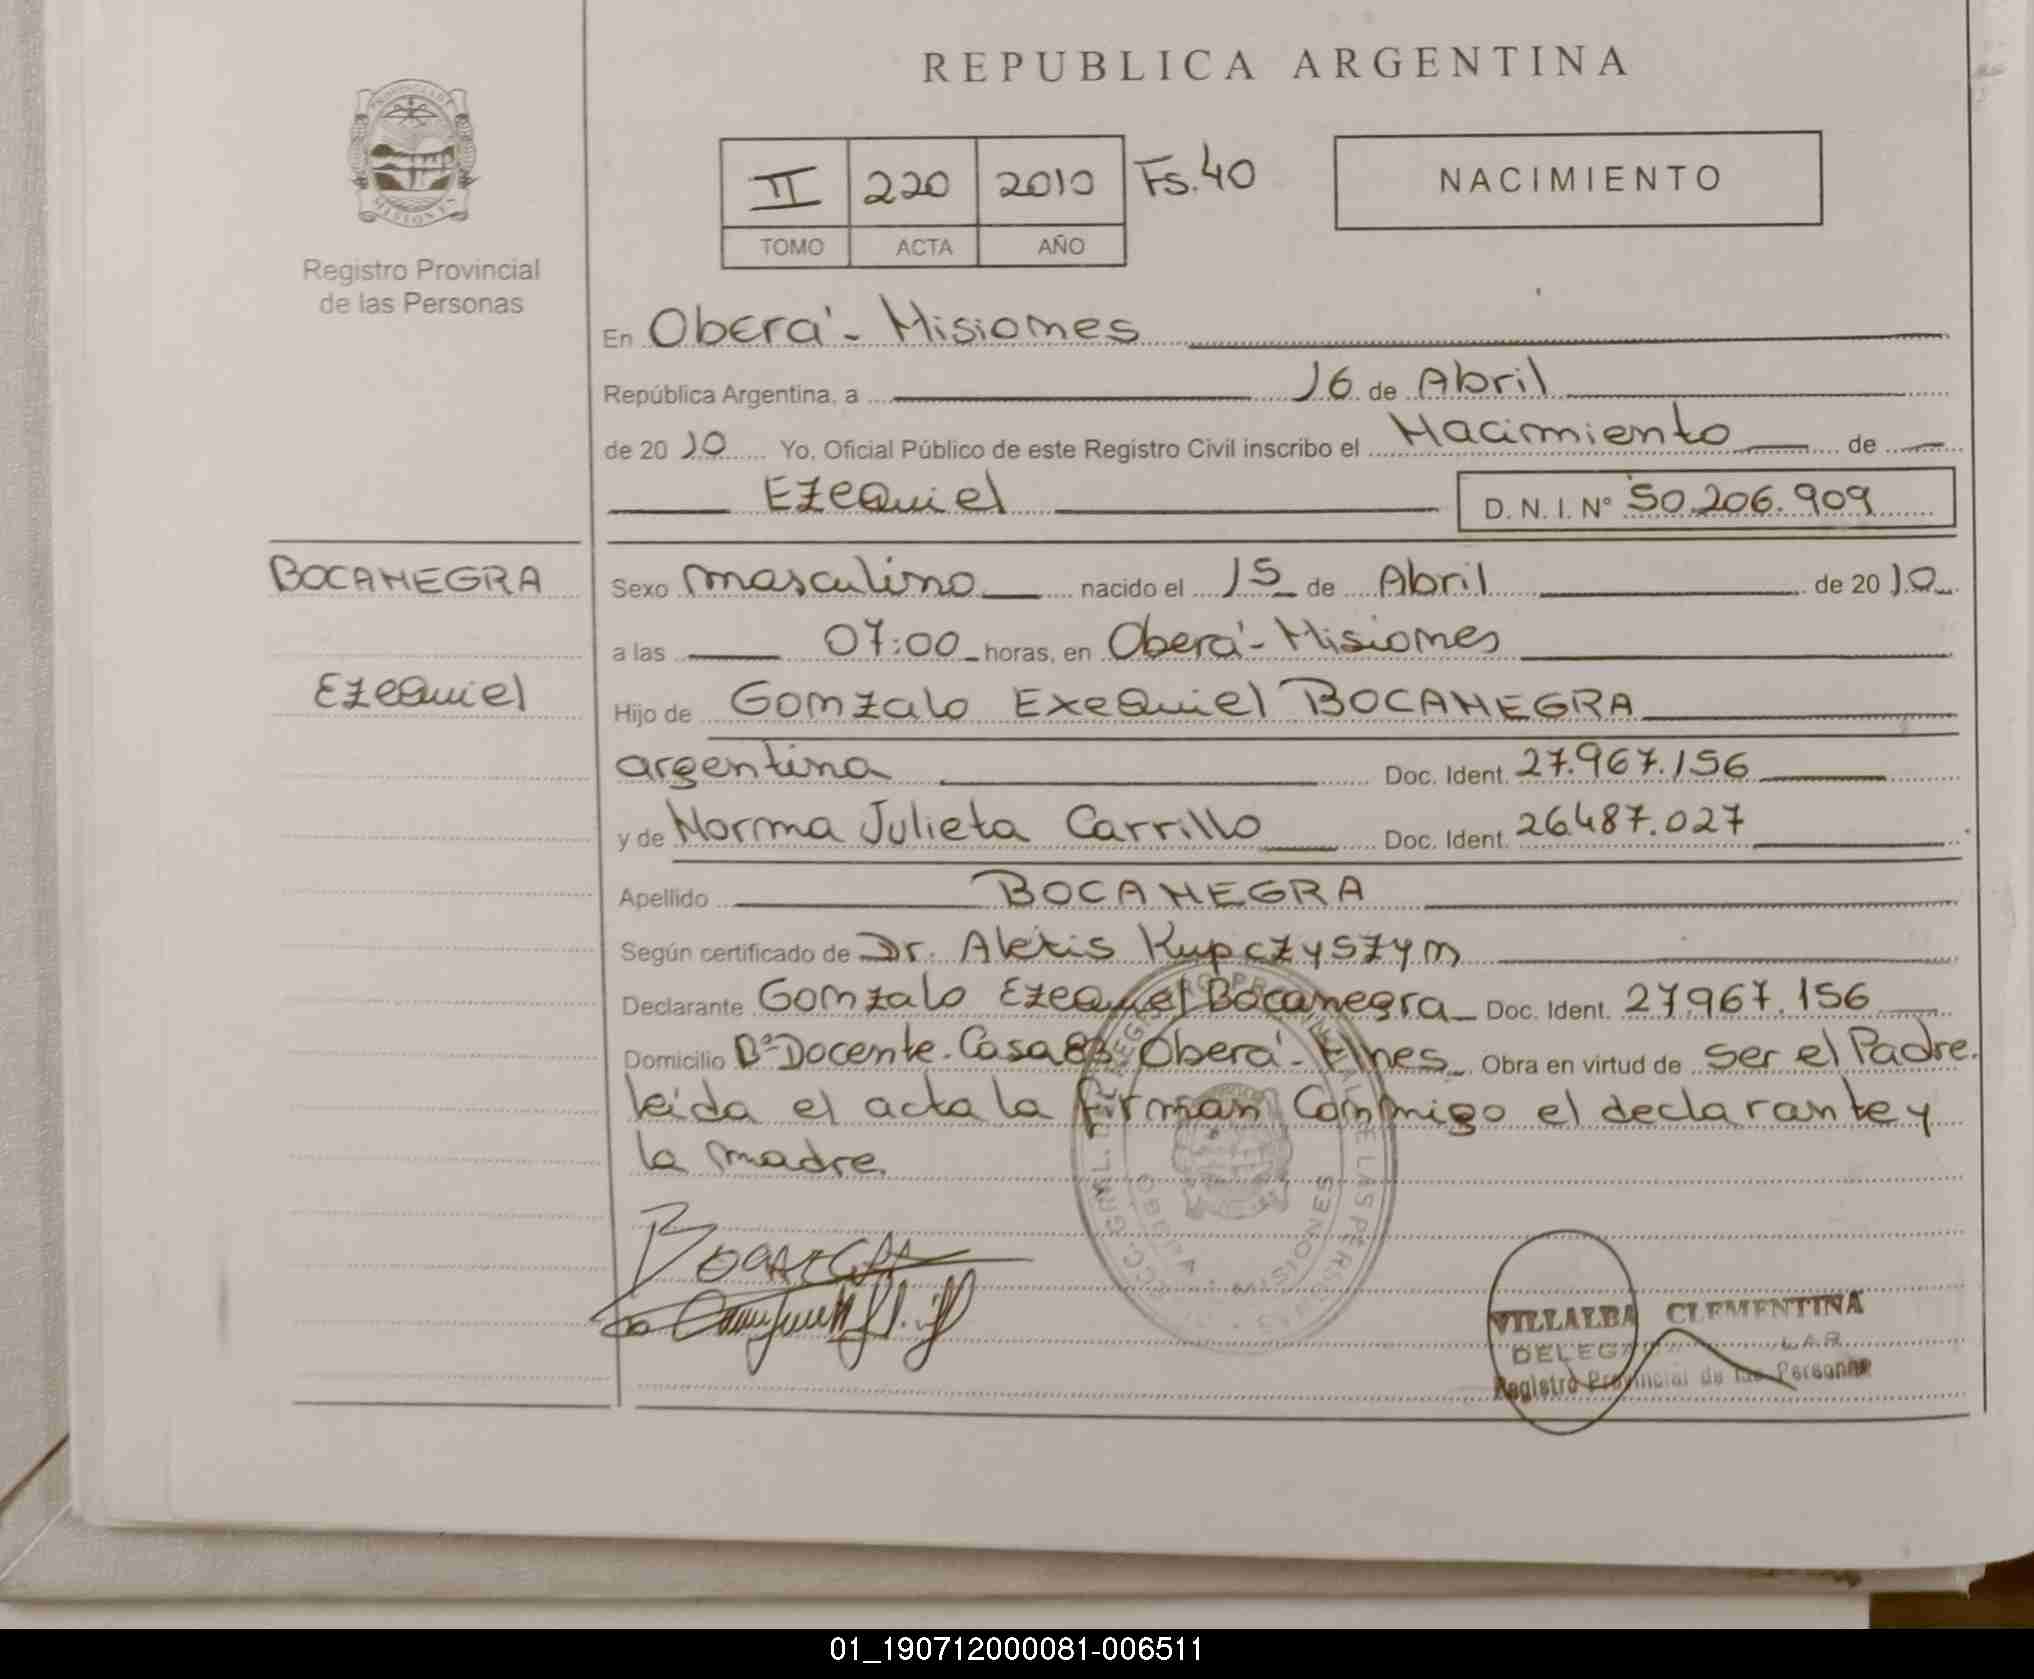 REPUBLICA ARGENTINA
PROVINCIA DE MISIONES
Registro Provincial
de las Personas
II 220 2010 Fs. 40
TOMO ACTA AÑO
NACIMIENTO
En Oberá - Misiones
República Argentina, a 16 de Abril
de 2010 Yo, Oficial Público de este Registro Civil inscribo el Nacimiento de
Ezequiel D. N. I. Nº 50.206.909
BOCANEGRA
Ezequiel
Sexo masculino nacido el 15 de Abril de 2010
a las 07:00 horas, en Oberá - Misiones
Hijo de Gonzalo Exequiel BOCANEGRA
argentina Doc. Ident. 27.967.156
y de Norma Julieta Carrillo Doc. Ident. 26.487.027
Apellido BOCANEGRA
Según certificado de Dr. Alexis Kupczyszyn
Declarante Gonzalo Ezequiel Bocanegra Doc. Ident. 27.967.156
Domicilio Bº Docente. Casa 83 Oberá - Mnes Obra en virtud de ser el Padre.
leida el acta la firman conmigo el declarante y
la madre.
BOCANEGRA
OBERA MISIONES
VILLALBA CLEMENTINA
Registro Provincial de las Personas
01_190712000081-006511